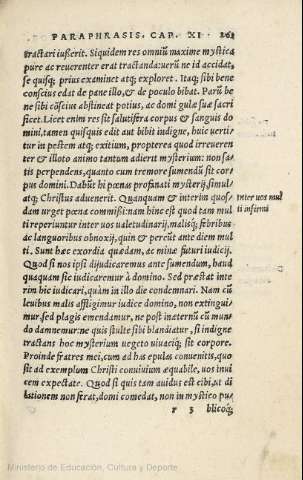 PARAPHRASIS. CAP. XI
tractari iusserit. Siquidem res omniũ maxime mystica
pure ac reuerenter erat tractanda: uerũ ne id accidat,
se quisq; prius examinet atq; exploret. Itaq; sibi bene
conscius edat de pane illo, & de poculo bibat. Parũ be
ne sibi cõscius abstineat potius, ac domi gulæ suæ sacri
ficet. Licet enim res sit salutifera corpus & sanguis do
mini, tamen quisquis edit aut bibit indigne, huic uerti
tur in pestem atq; exitium, propterea quod irreueren
ter & illoto animo tantum adierit mysterium: non sa
tis perpendens, quanto cum tremore sumendũ sit cor
pus domini. Dabũt hi pœnas profanati mysterij, simul
atq; Christus aduenerit. Quanquam & interim quos
dam urget pœna commissi: nam hinc est quod tam mul
ti reperiuntur inter uos ualetudinarij, malisq; febribus
ac languoribus obnoxij, quin & pereũt ante diem mul
ti. Sunt hæc exordia quædam, ac minæ futuri iudicij.
Quod si nos ipsi dijudicaremus ante sumendum, haud
quaquam sic iudicaremur à domino. Sed præstat inte
rim hic iudicari, quàm in illo die condemnari. Nam cũ
leuibus malis affligimur iudice domino, non extingui
mur sed plagis emendamur, ne post inaternũ cũ mun
do damnemur: ne quis stulte sibi blandiatur, si indigne
tractans hoc mysterium uegeto uiuaciq; sit corpore.
Proinde fratres mei, cum ad has epulas conuenitis, quo
sit ad exemplum Christi conuiuium æquabile, uos inui
cem expectate. Quod si quis tam auidus est cibi, ut di
lationem non ferat, domi comedat, non in mystico pu
r 3 blicoq;
Inter uos mul
ti infirmi
Ministerio de Educación, Cultura y Deporte